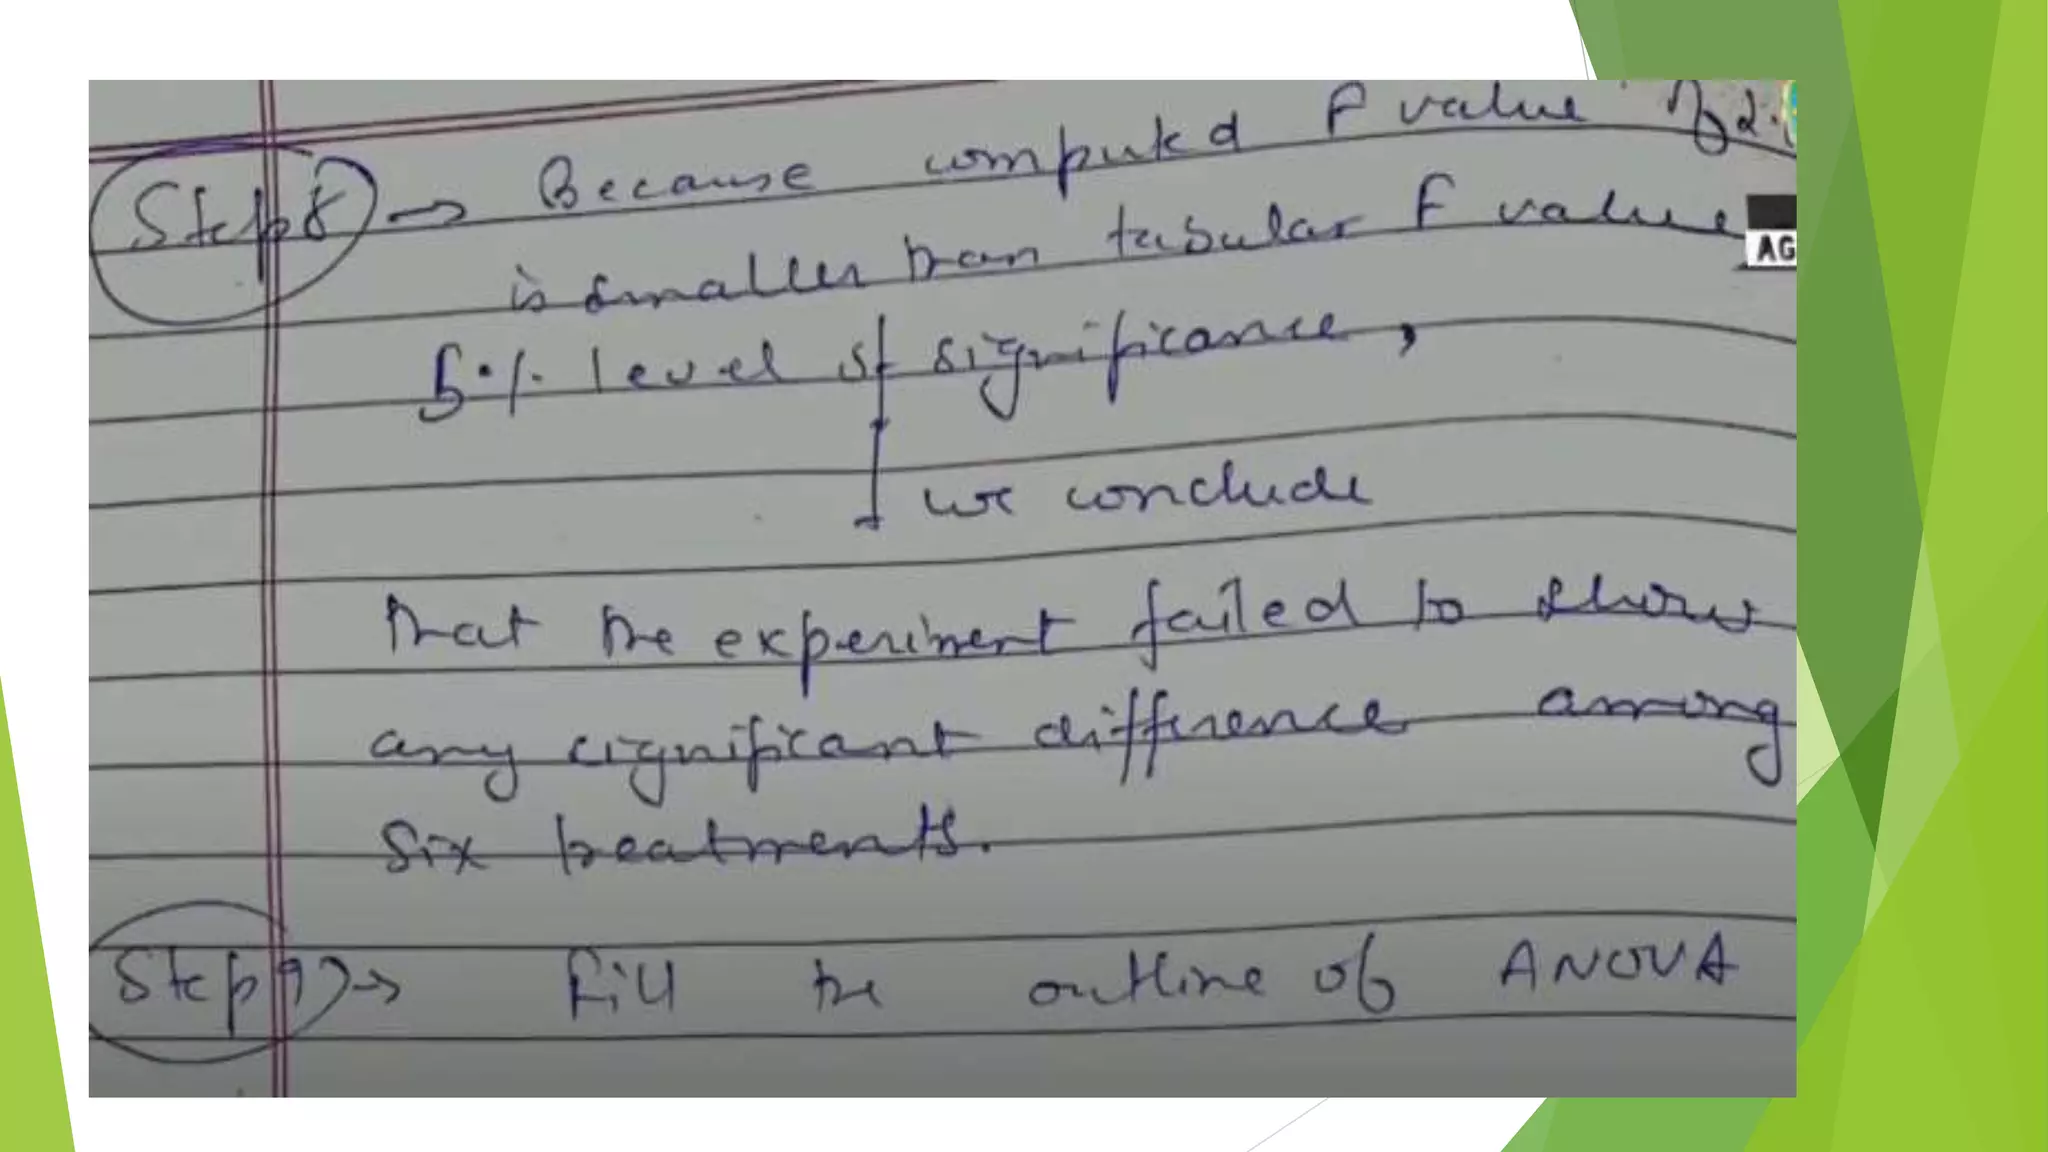 Step 8 → Because computed F value of 2.
is smaller than tabular F value
AG
5% level of significance,
we conclude
that the experiment failed to show
any significant difference among
six treatments.
Step 9 → Fill the outline of ANOVA